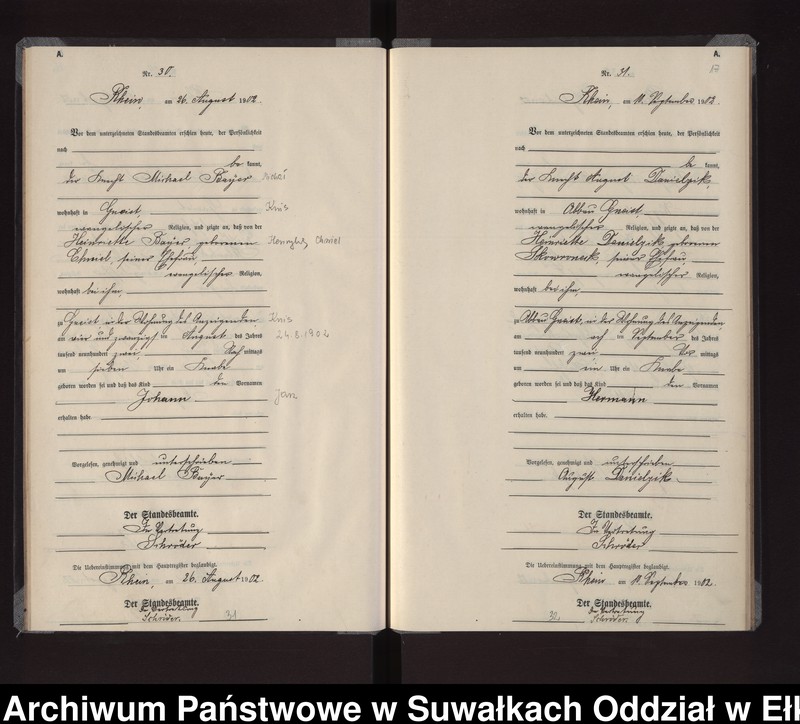 A.
Nr. 30.
Rhein, am 26. August 1902.
Vor dem unterzeichneten Standesbeamten erschien heute, der Persönlichkeit
nach
be kannt,
der Knecht Michael Bayer
wohnhaft in
Knis
evangelischer Religion, und zeigte an, daß von der
Heinriette Bayer, geborenen
Chmiel, seiner Ehefrau,
Chmiel
evangelischer Religion,
wohnhaft bei ihm,
zu in der Wohnung des Anzeigenden
Knis
am vier und zwanzigsten August des Jahres
24.8.1902
tausend neunhundert zwei Nach mittags
um sieben Uhr ein Knabe
geboren worden sei und daß das Kind den Vornamen
Johann
Jan
erhalten habe.
Vorgelesen, genehmigt und unterschrieben
Michael Bayer
Der Standesbeamte.
In Vertretung
Schröder
Die Uebereinstimmung mit dem Hauptregister beglaubigt.
Rhein, am 26. August 1902.
Der Standesbeamte.
In Vertretung
Schröder.
31
A.
Nr. 31.
Rhein, am 11. September 1902.
Vor dem unterzeichneten Standesbeamten erschien heute, der Persönlichkeit
nach
be kannt,
der Knecht August Danielzik,
wohnhaft in Abbau
evangelischer Religion, und zeigte an, daß von der
Henriette Danielzik, geborenen
Skowronnek, seiner Ehefrau
evangelischer Religion,
wohnhaft bei ihm,
zu Abbau in der Wohnung des Anzeigenden
am September des Jahres
tausend neunhundert zwei Vor mittags
um ein Uhr ein Knabe
geboren worden sei und daß das Kind den Vornamen
Hermann
erhalten habe.
Vorgelesen, genehmigt und unterschrieben
August Danielzik.
Der Standesbeamte.
In Vertretung
Schröder
Die Uebereinstimmung mit dem Hauptregister beglaubigt.
Rhein am 11. September 1902.
Der Standesbeamte.
In Vertretung
30. Schröder.
Archiwum Państwowe w Suwałkach Oddział w Eł